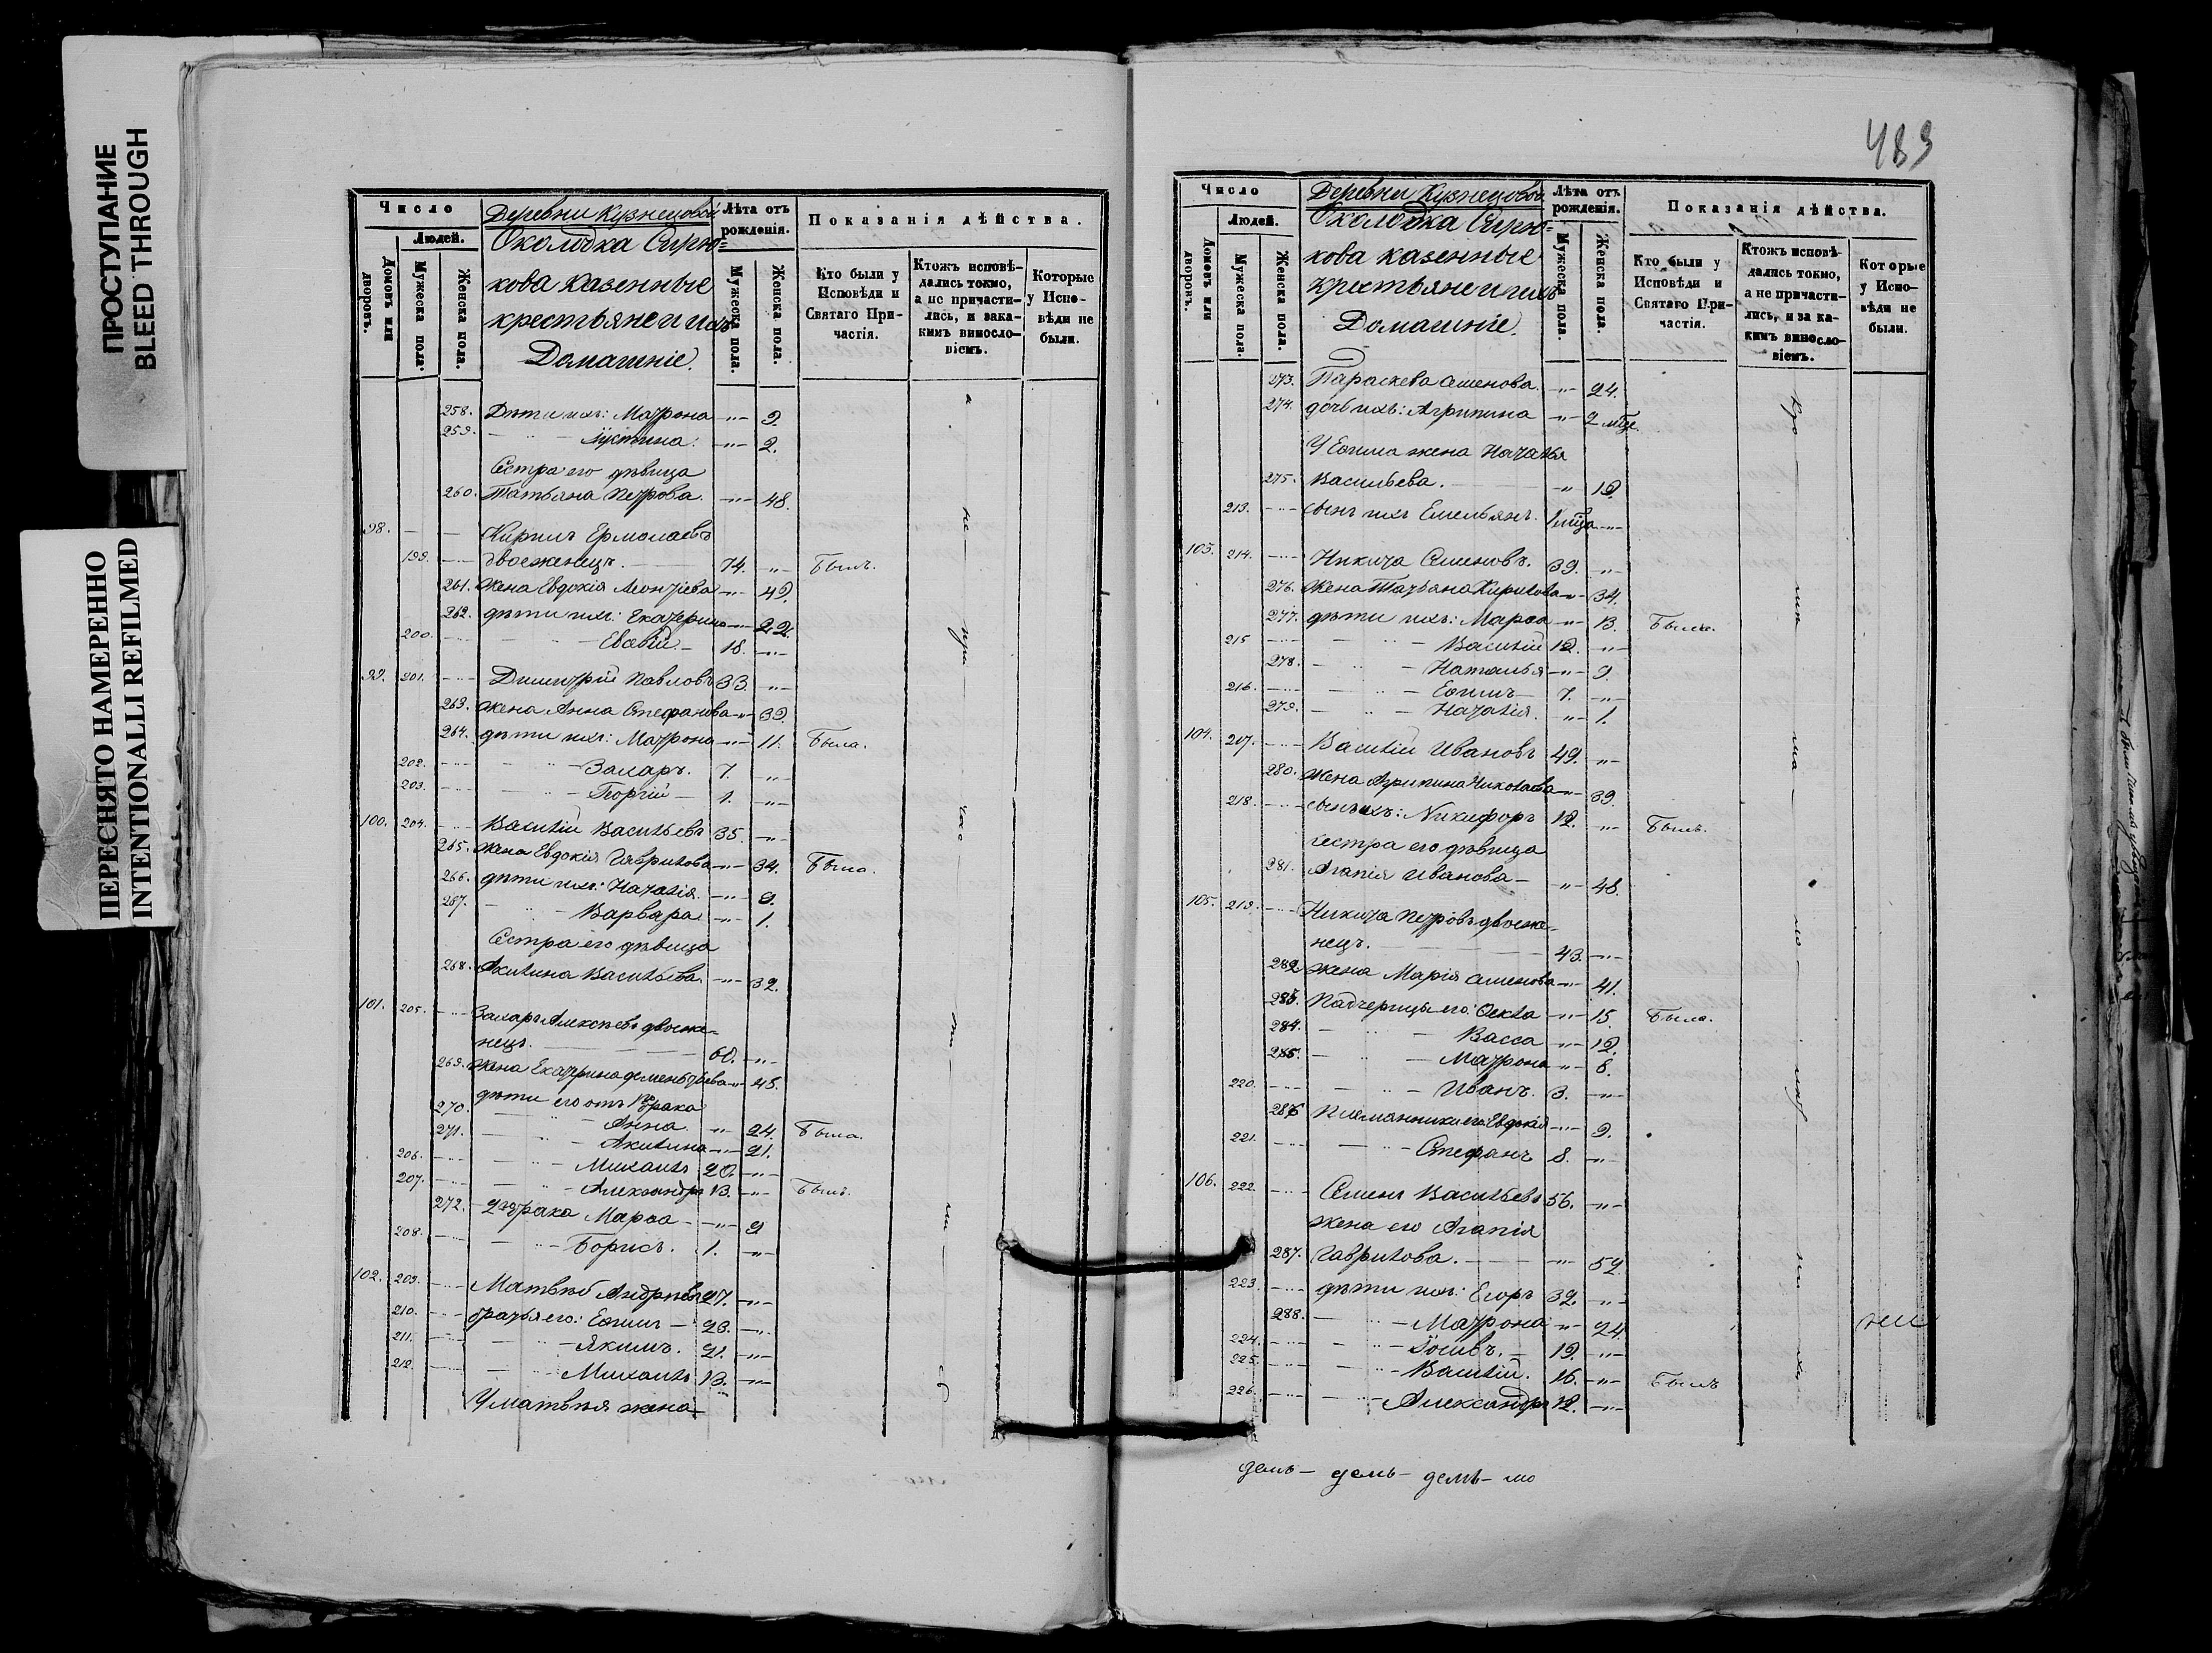 ПРОСТУПАНИЕ
BLEED THROUGH
ПЕРЕСНЯТО НАМЕРЕННО
INTENTIONALLI REFILMED
Число
Людей.
Домовъ или дворовъ.
Мужеска пола.
Женска пола.
Деревни Кузнецовой
Околодка Сирю=
кова казенные
крестьяне и ихъ
Домашніе.
Лѣта отъ рожденія.
Мужеска пола.
Женска пола.
Показанія дѣйства.
Кто были у Исповѣди и Святаго Причастія.
Ктожъ исповѣдались токмо, а не причастились, и за какимъ винословіемъ.
Которые у Исповѣди не были.
258. Дѣти ихъ: Матрона -"- 9.
259. - " - Іустина. -"- 2.
Сестра его дѣвица
260. Татьяна Петрова. -"- 48.
98. Кирилъ Ермолаевъ
199. двоеженецъ. 74. -"- Былъ.
261. Жена Евдокія Леонтьева -"- 49.
262. дѣти ихъ: Екатерина -"- 22.
200. 18. -"-
99. 201. Димитрій Павловъ 33. -"-
263. жена Анна Стефанова -"- 39.
264. дѣти ихъ: Матрона -"- 11. Была.
202. - " - Захаръ. 7. -"-
203. - " - Георгій - 1. -"-
100. 204. Василій Васильевъ 35. -"-
265. Жена Евдокія Гаврилова -"- 34. Была.
266. дѣти ихъ: Наталія -"- 9.
267. - " - Варвара -"- 1.
Сестра его дѣвица
268. Акилина Васильева -"- 32.
101. 205. Захаръ Алексѣевъ двоеже-
нецъ. 60. -"-
269. Жена Екатрина Дементьева -"- 45.
дѣти его отъ 1го брака
270. - Анна. -"- 24. Была.
271. - " - Акилина -"- 21.
206. - " - Михаилъ 20. -"-
207. - " - Александръ 13. -"- Былъ.
272. 2го брака Марѳа -"- 9
208. - " - Борисъ. 1. -"-
102. 209. Матвѣй Андреевъ 27. -"-
210. братья его: Евѳимъ - 23. -"-
211. - " - Якимъ. 21. -"-
212. - " - Михаилъ 13. -"-
У Матвѣя жена
483
Число
Людей.
Домовъ или дворовъ.
Мужеска пола.
Женска пола.
Деревни Кузнецовой
Околодка Сирю=
кова казенные
крестьяне и ихъ
Домашніе.
Лѣта отъ рожденія.
Мужеска пола.
Женска пола.
Показанія дѣйства.
Кто были у Исповѣди и Святаго Причастія.
Ктожъ исповѣдались токмо, а не причастились, и за какимъ винословіемъ.
Которые у Исповѣди не были.
273. Параскева Семенова. -"- 24.
274. дочь ихъ: Агрипина -"- 2 мѣс.
У Евѳима жена Наталья
275. Васильева. -"- 19.
213. сынъ ихъ Емельянъ. 1 мѣца -"-
103. 214. Никита Семеновъ. 39. -"-
276. Жена Татьяна Кирилова -"- 34.
277. дѣти ихъ: Марѳа -"- 13. Была.
215 - " - Василій 12. -"-
278. - " - Наталья -"- 9.
216. - " - Евѳимъ 7. -"-
279. - " - Наталія. -"- 1.
104. 217. Василій Ивановъ 49. -"-
280. Жена Агрипина Николаева -"- 39.
218. сынъ ихъ: Никифоръ 12. -"- Былъ.
сестра его дѣвица
281. Агапія Иванова - -"- 48.
105. 219. Никита Петровъ двоеже-
нецъ. 43. -"-
282 жена Марія Семенова -"- 41.
283. Падчерицы его: Ѳекла -"- 15. Была.
284. - " - Васса -"- 12.
285. - " - Матрона -"- 8.
220. - " - Иванъ. 3. -"-
286 племянники его: Евдокія -"- 9.
221. - " - Стефанъ 8. -"-
106. 222. Семенъ Васильевъ 56. -"-
жена его Агапія
287. Гаврилова. -"- 52
223. дѣти ихъ: Егоръ 32. -"-
288. - " - Матрона -"- 24
224. - " - Іосифъ. 19. -"-
225. - " - Василій. 16. -"- Былъ
226. - " - Александръ 12. -"-